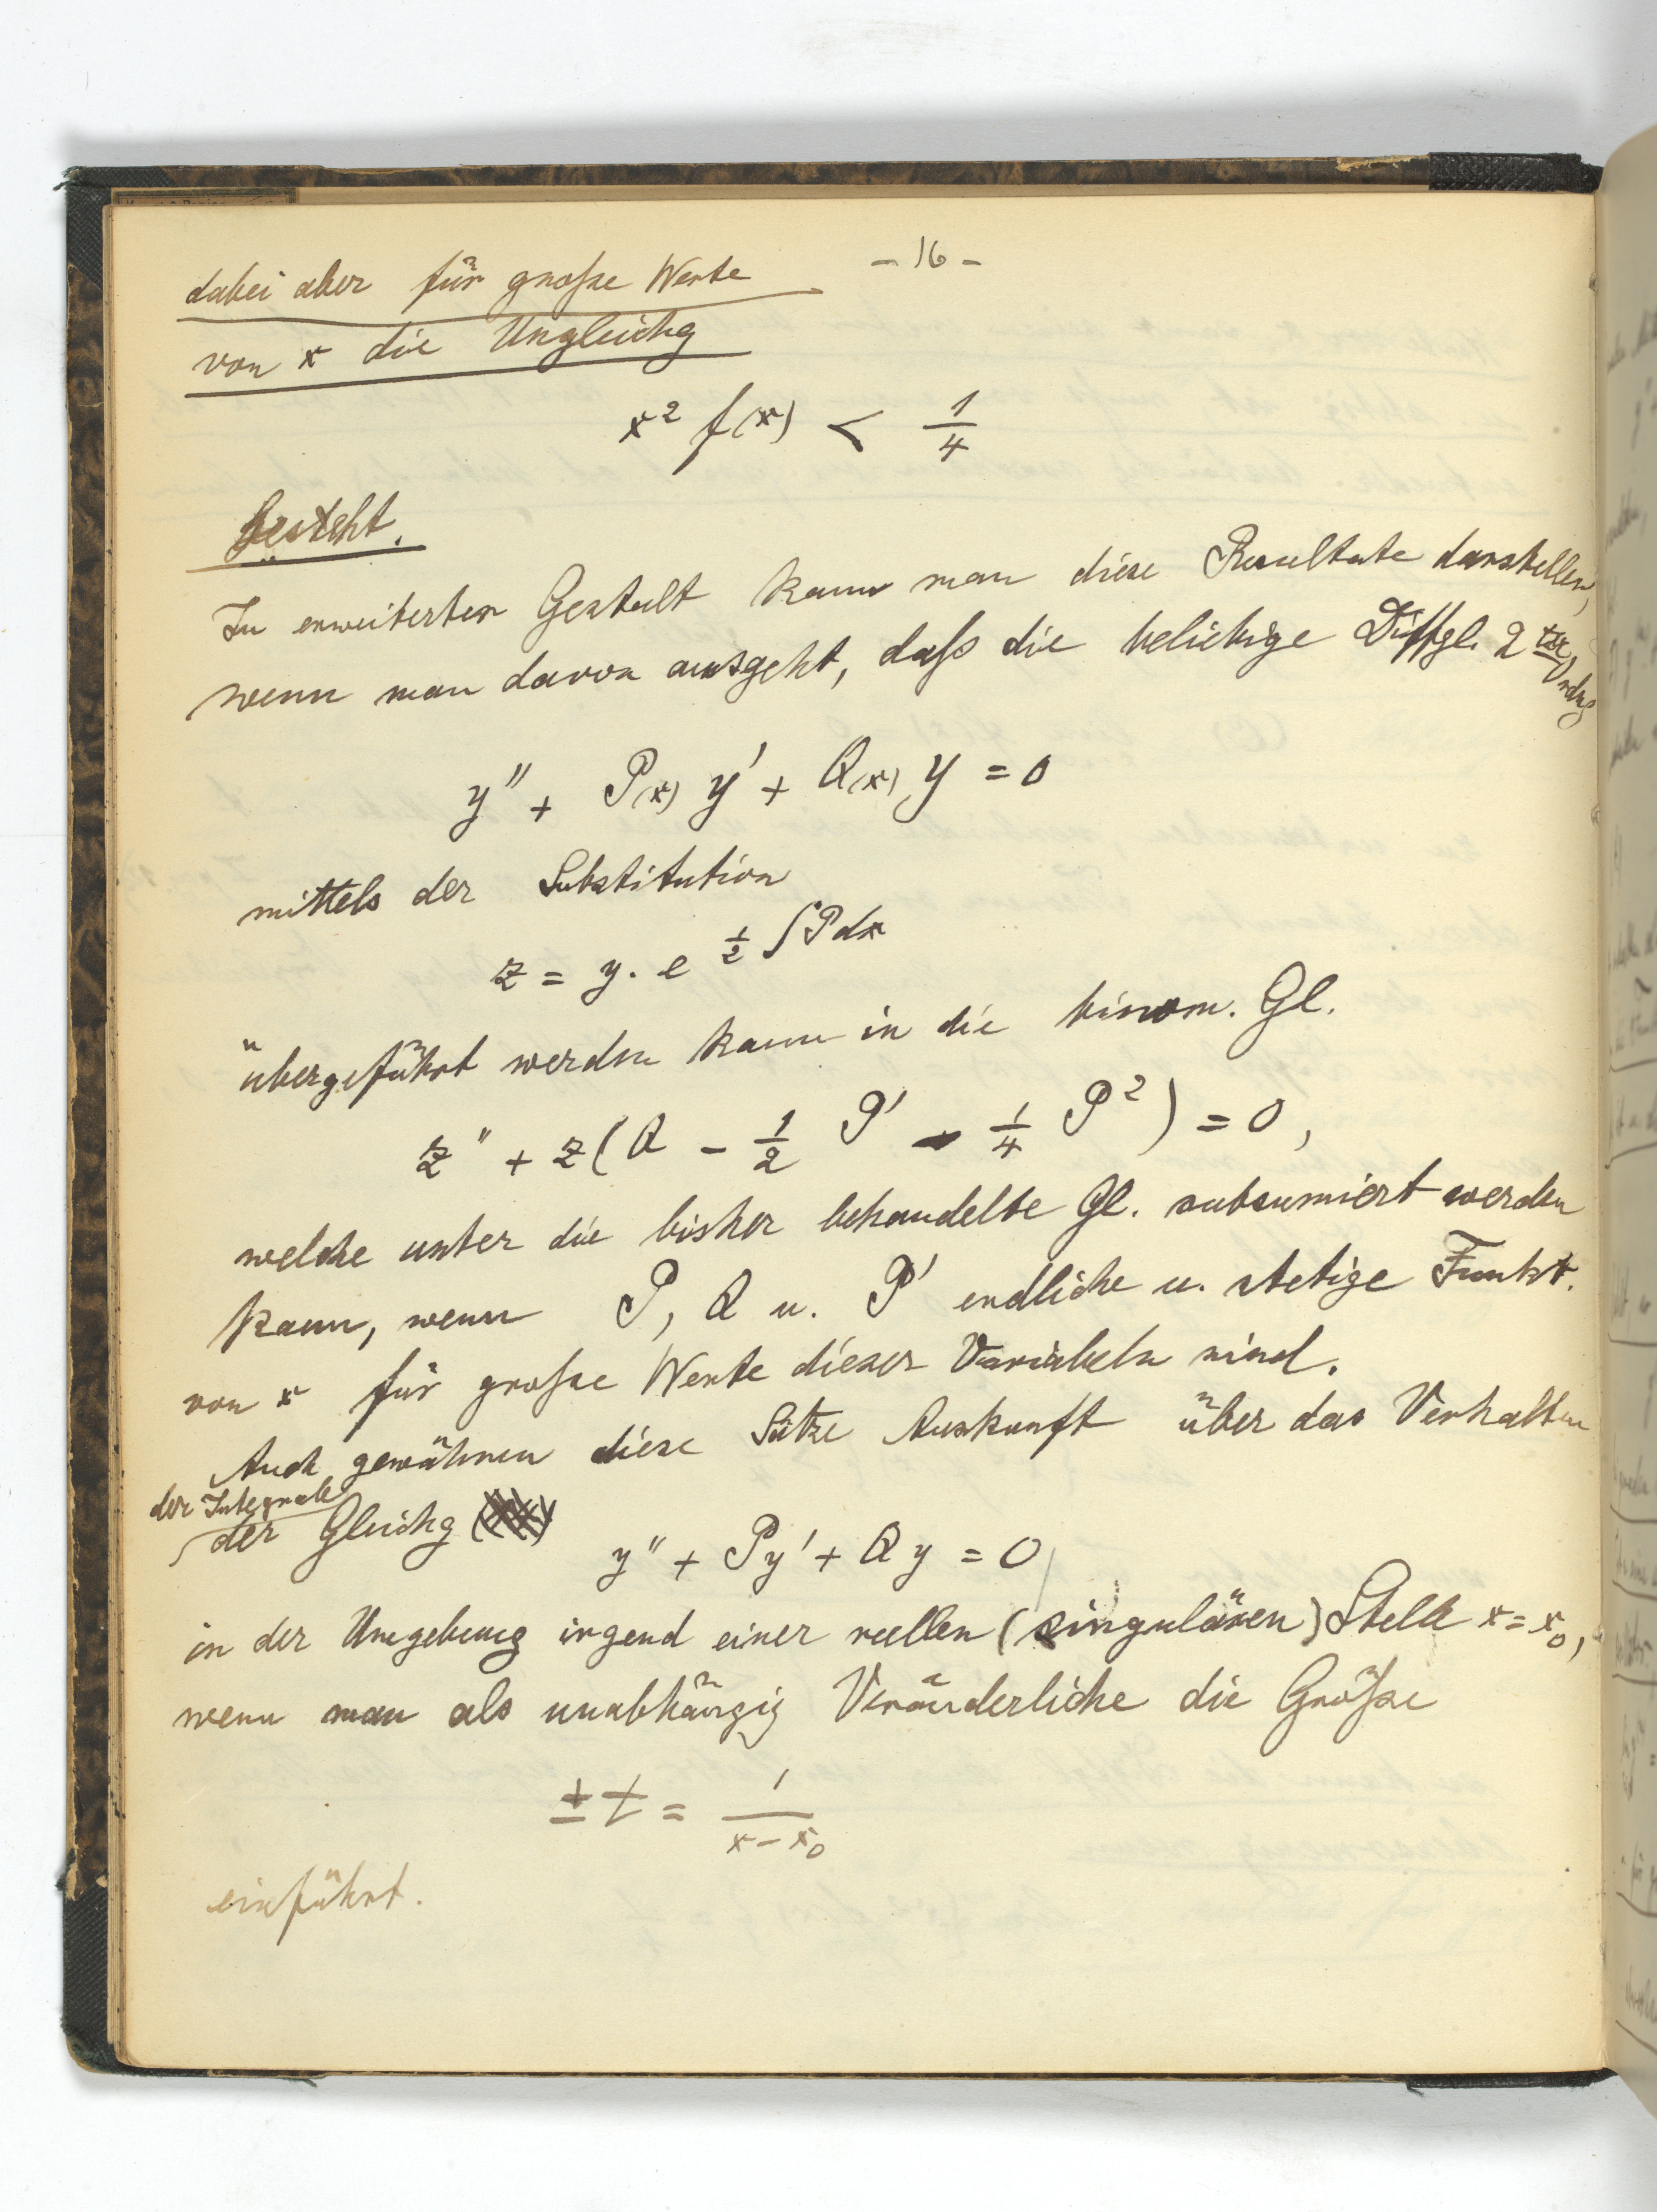 - 16 -
dabei aber für große Werte
von x die Ungleichg
x² f(x) < 1/4
besteht.
In erweiterter Gestalt kann man diese Resultate darstellen,
wenn man davon ausgeht, daß die beliebige Diffgl. 2ter Ordng
y'' + P(x) y' + Q(x) y = 0
mittels der Substitution
z = y. e^{1/2 ∫Pdx}
übergeführt werden kann in die binom. Gl.
z'' + z(Q - 1/2 P' - 1/4 P²) = 0,
welche unter die bisher behandelte Gl. subsumiert werden
kann, wenn P, Q u. P' endliche u. stetige Funkt.
von x für große Werte dieser Variabeln sind.
Auch gewähren diese Sätze Auskunft über das Verhalten
der Integrale
der Gleichg
y'' + Py' + Qy = 0
in der Umgebung irgend einer reellen (singulären) Stelle x = x₀,
wenn man als unabhängig Veränderliche die Größe
± t = 1/(x - x₀)
einführt.